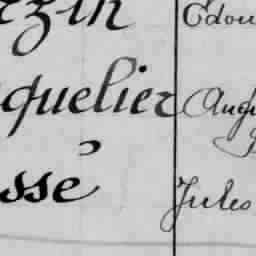 zin Edou
quelier Augu
ssé Jules